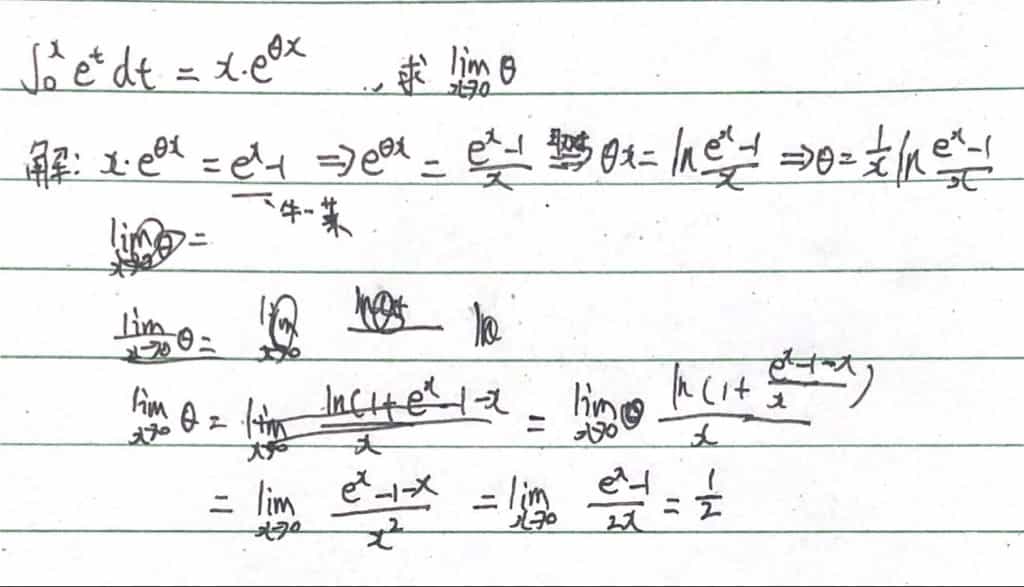 ∫₀ˣ eᵗ dt = x·e^(θx) ., 求 lim_(x→0) θ
解: x·e^(θx) = eˣ-1 ⇒ e^(θx) = (eˣ-1)/x ⇒ θx = ln (eˣ-1)/x ⇒ θ = 1/x ln (eˣ-1)/x
牛-莱
lim_(x→0) θ =
lim_(x→0) θ = lim_(x→0)
lim_(x→0) θ = lim_(x→0) ln(1+eˣ-1-x / x = lim_(x→0) ln(1+ (eˣ-1-x)/x) / x
= lim_(x→0) (eˣ-1-x)/x² = lim_(x→0) (eˣ-1)/2x = 1/2